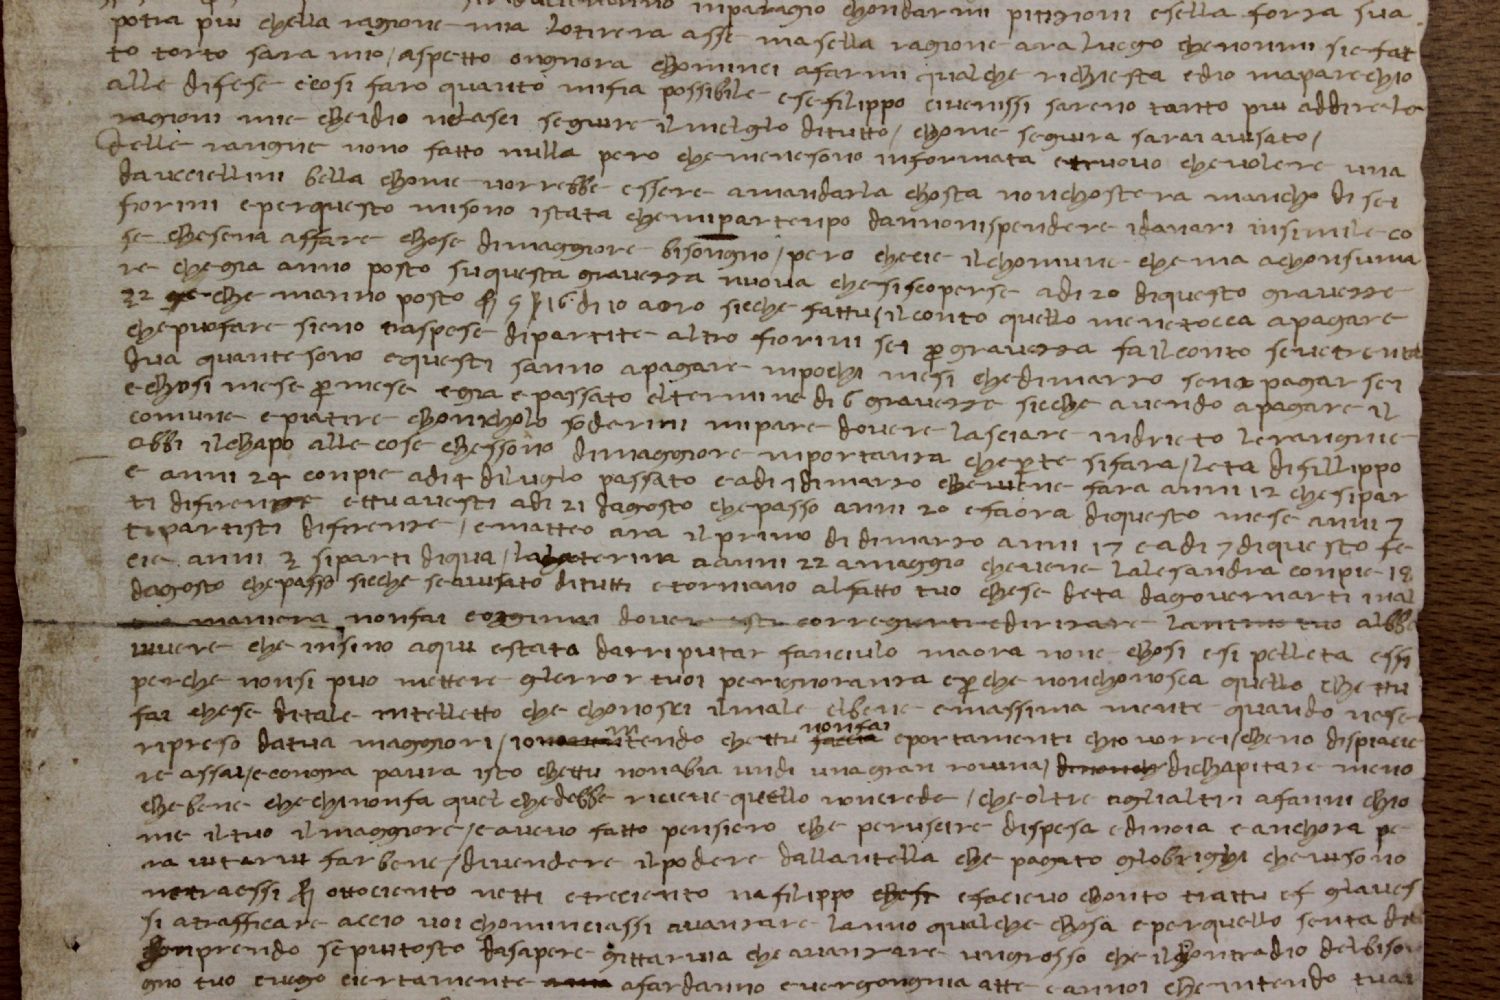 inparagio chondarmi pitizioni esella forza sua
potra piu chella ragione mia lotirera asse masella ragione ara luogo chenonmi siefat
to torto sara mio / aspetto ongniora chominci afarmi qualche richiesta edio maparechio
alle difese ecosi faro quanto mifia possibile esefilippo civenissi sareno tantto piu addire le
ragioni mie cheidio nelasci seguire ilmelglo ditutto / chome seguira sarai avisato /
Delle rangnie nono fatto nulla pero chemenesono informata etruovo chevolere una
daucciellini bella chome vorrebbe essere amandarla chosta nonchostera mancho di sei
fiorini eperquesto misono istata chemipartenpo dannonispendere idanari insimile co
se chesena affare chose dimaggiore bisongnio / pero checie ilchomune che ma achonsuma
re chegia anno posto suquesta graveza nuova chesiscoperse adi 20 diquesto graveze
32 che manno posto f 9 s 16 di 10 aoro sicche fattu ilconto quello menetocca apagare
chepuofare sieno traspese dipartite altro fiorini sei per graveza failconto senetrenta
dua quantesono equesti sanno apagare inpochi mesi chedimarzo sena pagar sei
echosi mese per mese egia epassato eltermine di 6 graveze sicche avendo apagare il
comune epiatire chonicholo soderini mipare dovere lasciare indrieto lerangnie
abbi ilchapo alle cose chessono dimaggiore inportanza cheperte sifara / leta difillippo
e anni 24 conpie adi 4 diluglo passato eadi 7 dimarzo cheviene fara anni 12 chesipar
ti difirenze ettu avesti adi 21 dagosto chepasso anni 20 efaora diquesto mese anni 7
tipartisti difirenze / ematteo ara ilprimo di dimarzo anni 17 eadi 7 diquesto fe
cie anni 3 siparti diqua / lachaterina aanni 22 amaggio cheviene lalesandra conpie 18
dagosto chepasso sicche seavisato ditutti etorniano alfatto tuo chese deta dagovernarti inal
tra maniera nonfai eoggimai dove correggierti edirizare lanimo tuo albbe
vivere che insino aqui estata darriputar fanciulo maora none chosi esi pelleta essi
perche nonsi puo mettere glerror tuoi perignioranza eperche nonchonosca quello chettu
fai chese ditale intelletto che chonosci ilmale elbene emassima mente quando nese
ripreso datua maggiori / io intendo chettu nonfai eportamenti chio vorrei / cheno dispiacie
re assai / econgra paura isto chettu nonabia undi unagran rovina / dichapitare meno
chebene chechinonfa quel chedebbe riceve quello noncrede / cheoltre aglialtri afanni chio
me iltuo ilmaggiore / eavevo fatto pensiero che peruscire dispesa edinoia eanchora pe
ra iutarvi farbene / divendere ilpodere dallantella che pagato globrighi chevisono
netraessi f ottociento netti etreciento nafilippo efacievo chonto trattu ef glavessi
si atrafficare accio voi chominciassi avanzare lanno qualche chosa eperquello sento di
chonprendo sepiutosto dasapere gittarvia cheavanzare ungrosso che ilchontradio delbiso
gnio tuo evego ciertamente afardanno evergongnia atte eannoi cheintendo tuai